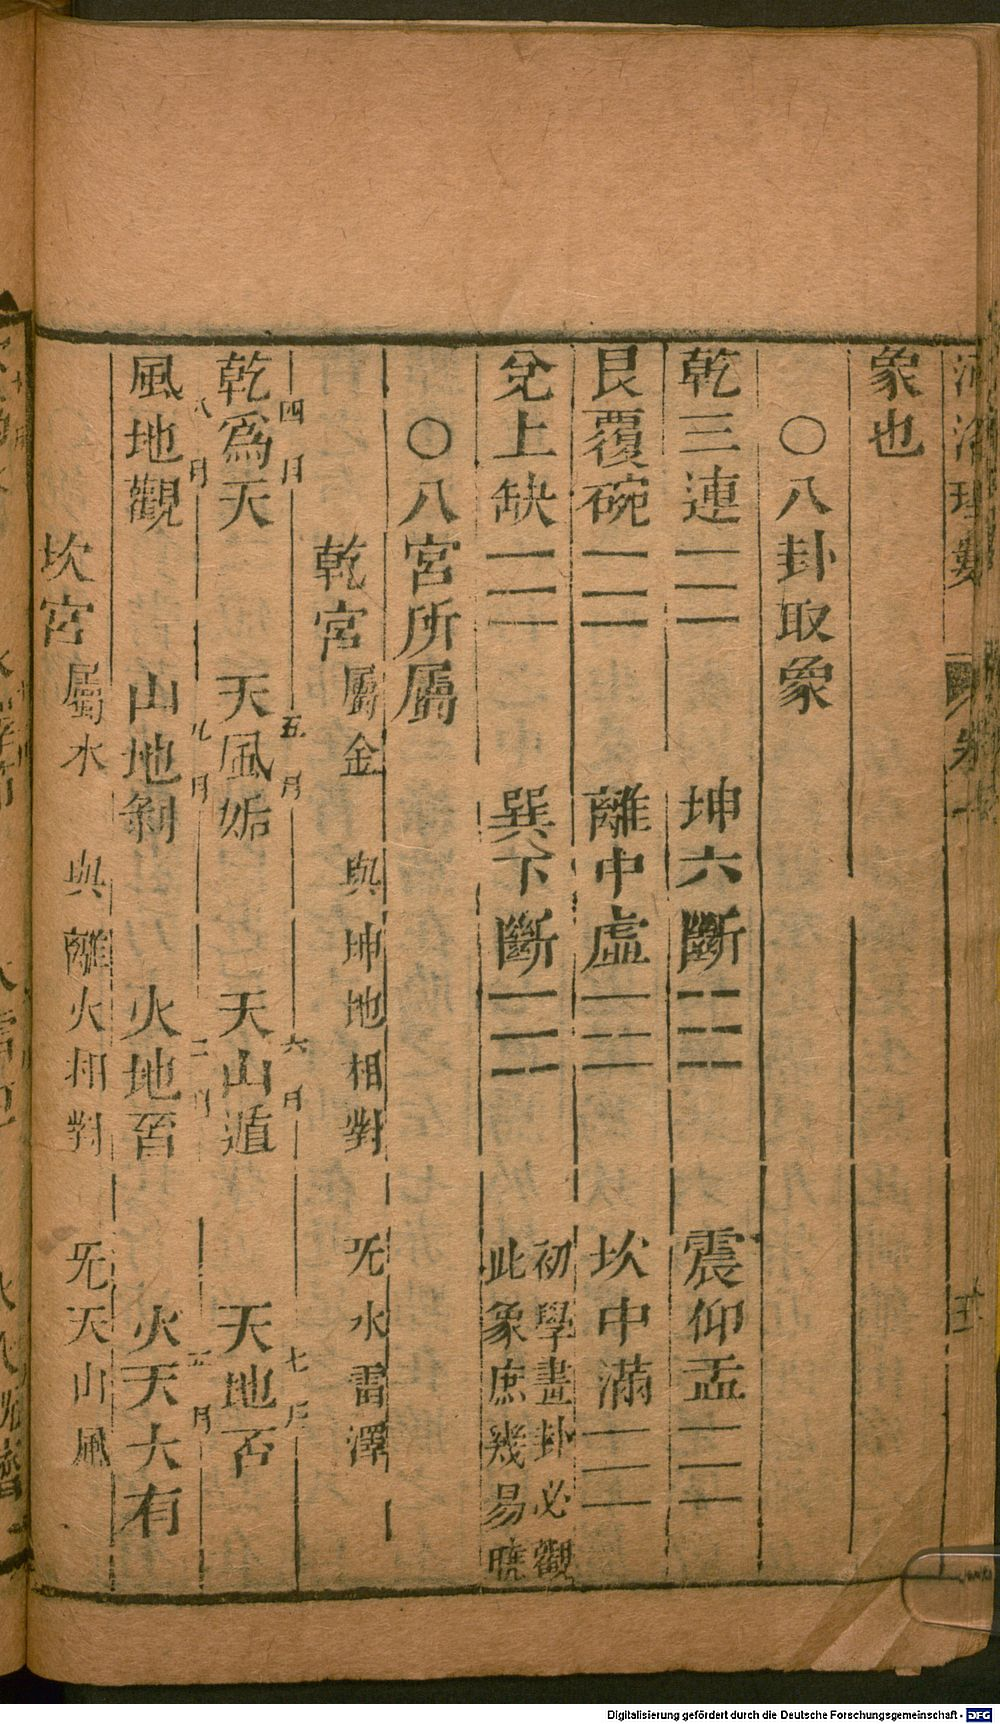 象也
○八卦取象
乾三連☰ 坤六斷☷ 震仰盂☳
艮覆碗☶ 離中虛☲ 坎中滿☵
兌上缺☱ 巽下斷☴ 初學畫卦必觀
此象庶幾易曉
○八宮所屬
乾宮屬金 與坤地相對 旡水雷澤
四月 五月 六月 七月
乾爲天 天風姤 天山遁 天地否
八月 九月 二月 五月
風地觀 山地剝 火地晋 火天大有
坎宮屬水 與離火相對 旡天山風
Digitalisierung gefördert durch die Deutsche Forschungsgemeinschaft - DFG